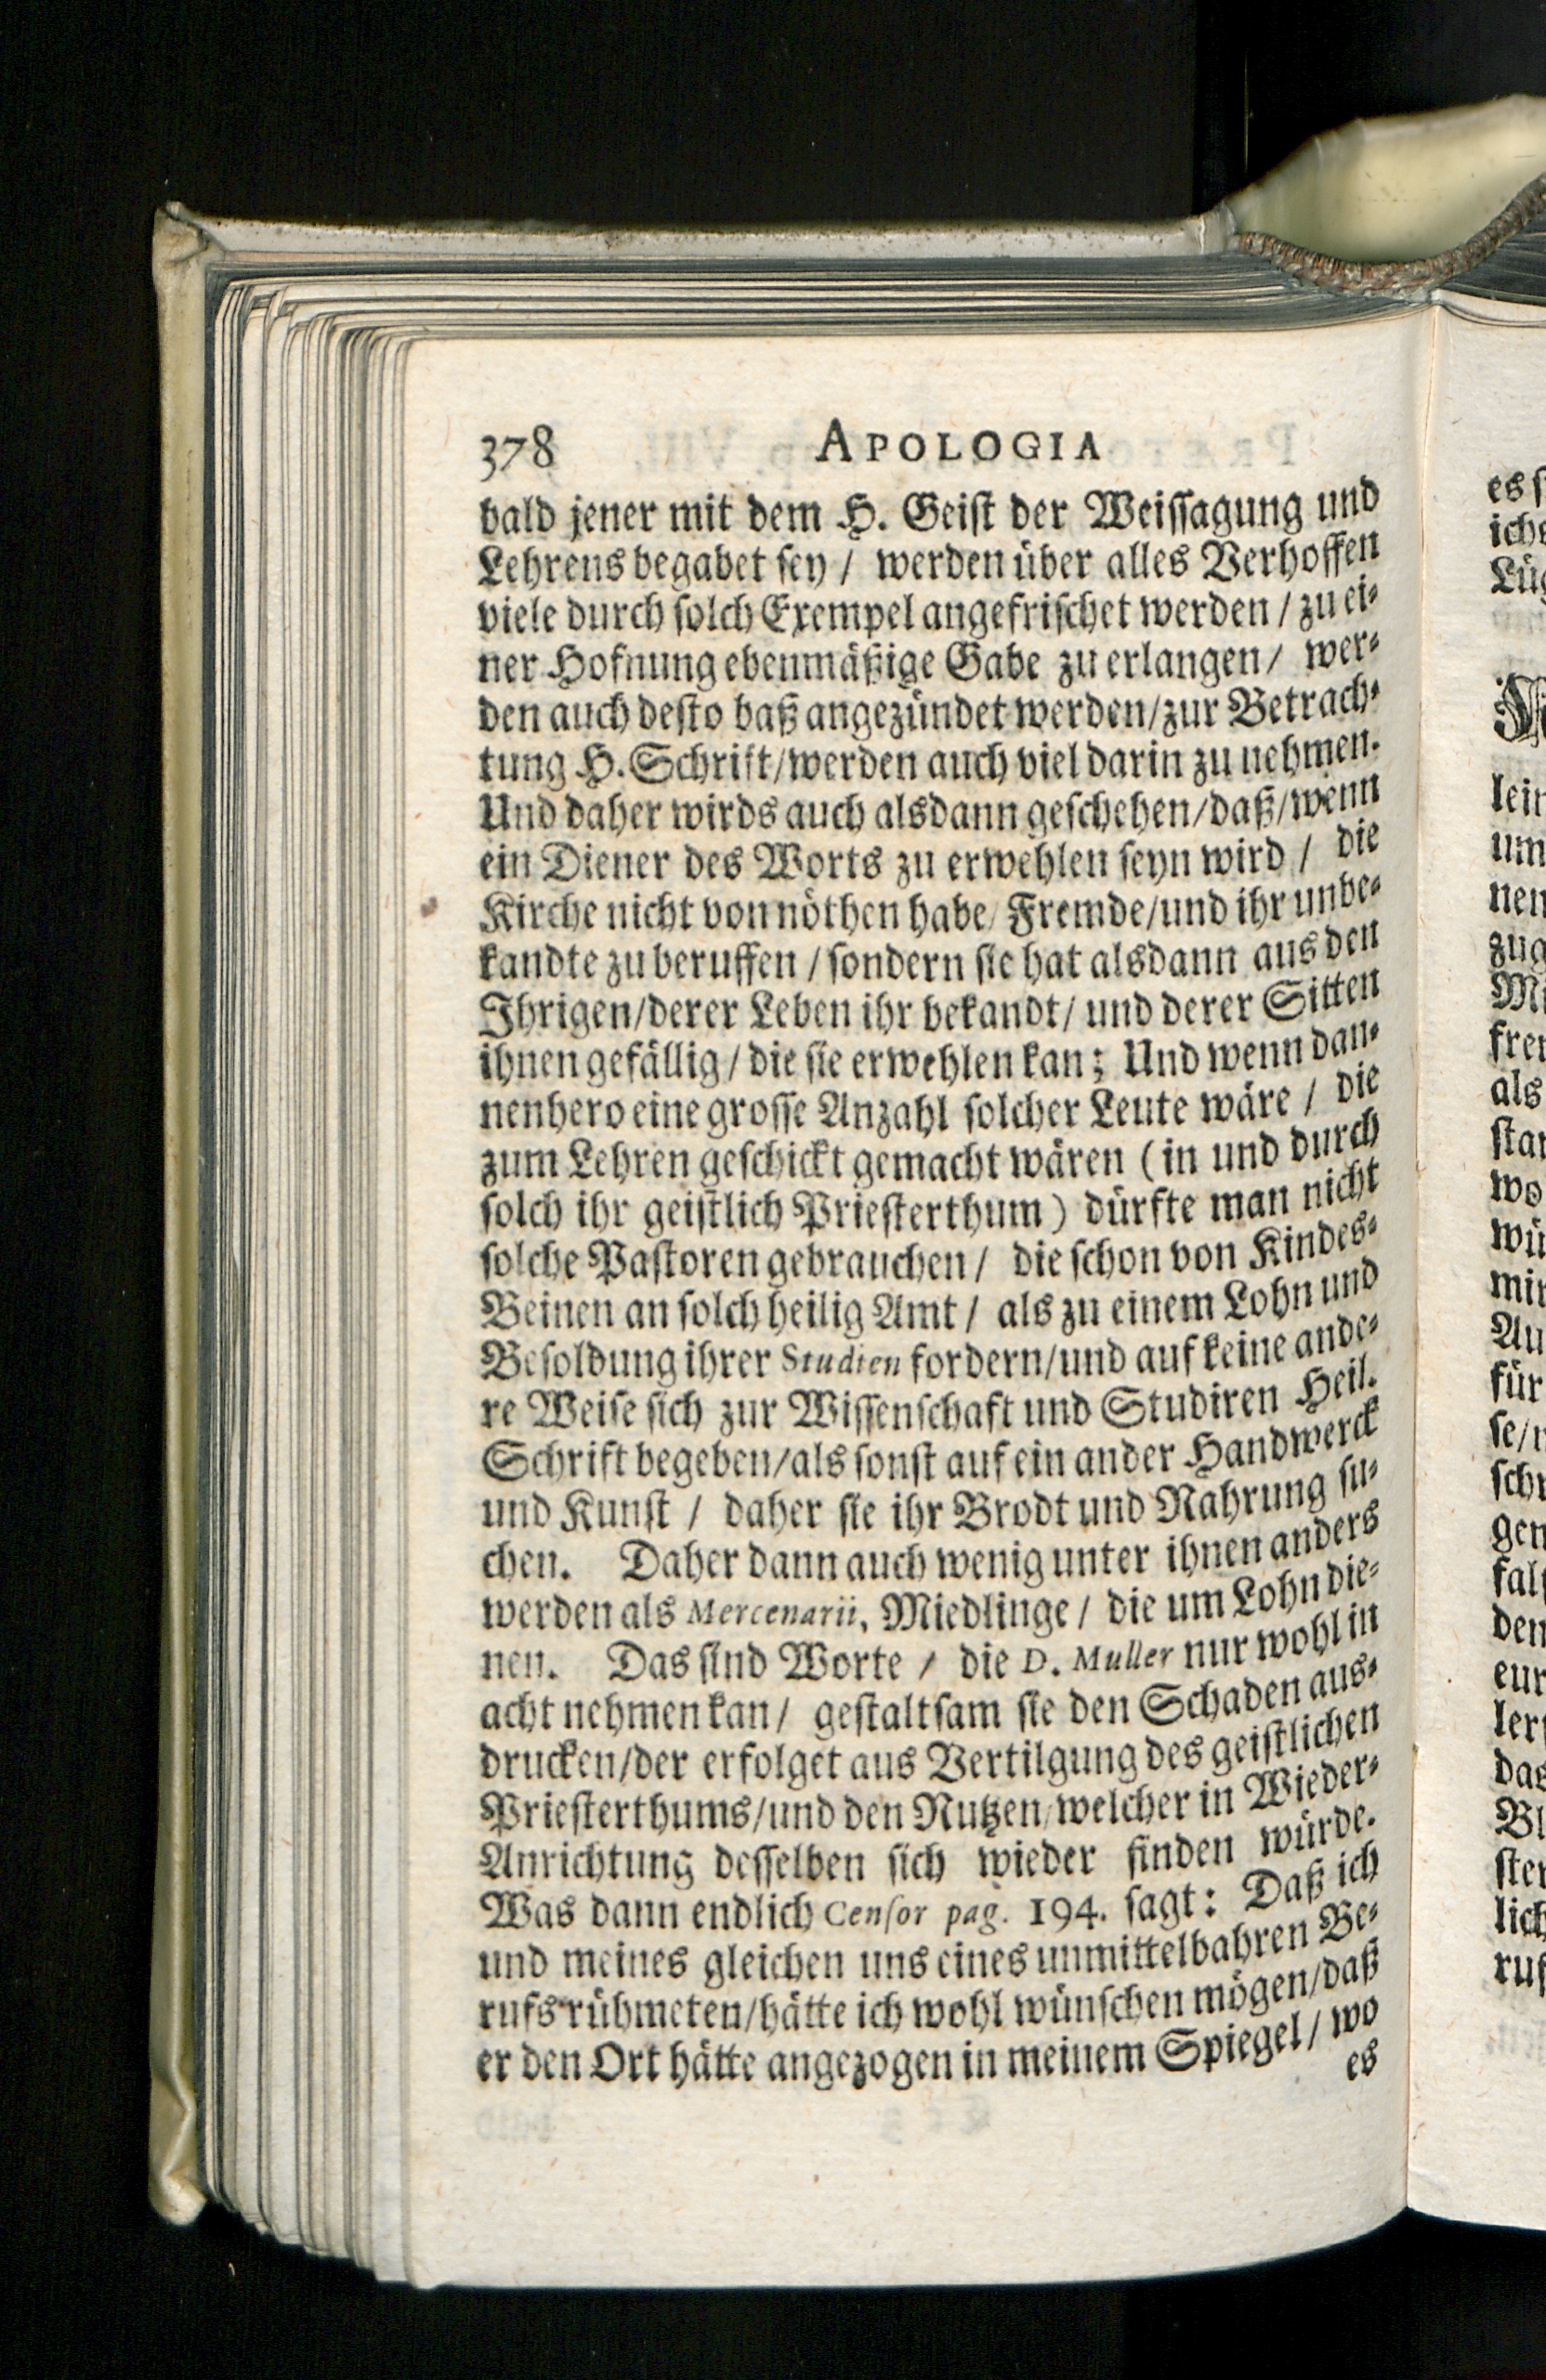 378 APOLOGIA
bald jener mit dem H. Geiſt der Weiſſagung und
Lehrens begabet ſey / werden über alles Verhoffen
viele durch ſolch Exempel angefriſchet werden / zu ei-
ner Hofnung ebenmäßige Gabe zu erlangen / wer-
den auch deſto baß angezündet werden / zur Betrach-
tung H. Schrift / werden auch viel darin zu nehmen.
Und daher wirds auch alsdann geſchehen / daß / wenn
ein Diener des Worts zu erwehlen ſeyn wird / die
Kirche nicht von nöthen habe / Fremde / und ihr unbe-
kandte zu beruffen / ſondern ſie hat alsdann aus den
Ihrigen / derer Leben ihr bekandt / und derer Sitten
ihnen gefällig / die ſie erwehlen kan; Und wenn dan-
nenhero eine groſſe Anzahl ſolcher Leute wäre / die
zum Lehren geſchickt gemacht wären (in und durch
ſolch ihr geiſtlich Prieſterthum) dürfte man nicht
ſolche Paſtoren gebrauchen / die ſchon von Kindes-
Beinen an ſolch heilig Amt / als zu einem Lohn und
Beſoldung ihrer Studien fordern / und auf keine ande-
re Weiſe ſich zur Wiſſenſchaft und Studiren Heil.
Schrift begeben / als ſonſt auf ein ander Handwerck
und Kunſt / daher ſie ihr Brodt und Nahrung ſu-
chen. Daher dann auch wenig unter ihnen anders
werden als Mercenarii, Miedlinge / die um Lohn die-
nen. Das ſind Worte / die D. Muller nur wohl in
acht nehmen kan / geſtaltſam ſie den Schaden aus-
drucken / der erfolget aus Vertilgung des geiſtlichen
Prieſterthums / und den Nutzen / welcher in Wieder-
Anrichtung deſſelben ſich wieder finden würde.
Was dann endlich Cenſor pag. 194. ſagt: Daß ich
und meines gleichen uns eines unmittelbahren Be-
rufs rühmeten / hätte ich wohl wünſchen mögen / daß
er den Ort hätte angezogen in meinem Spiegel / wo
es